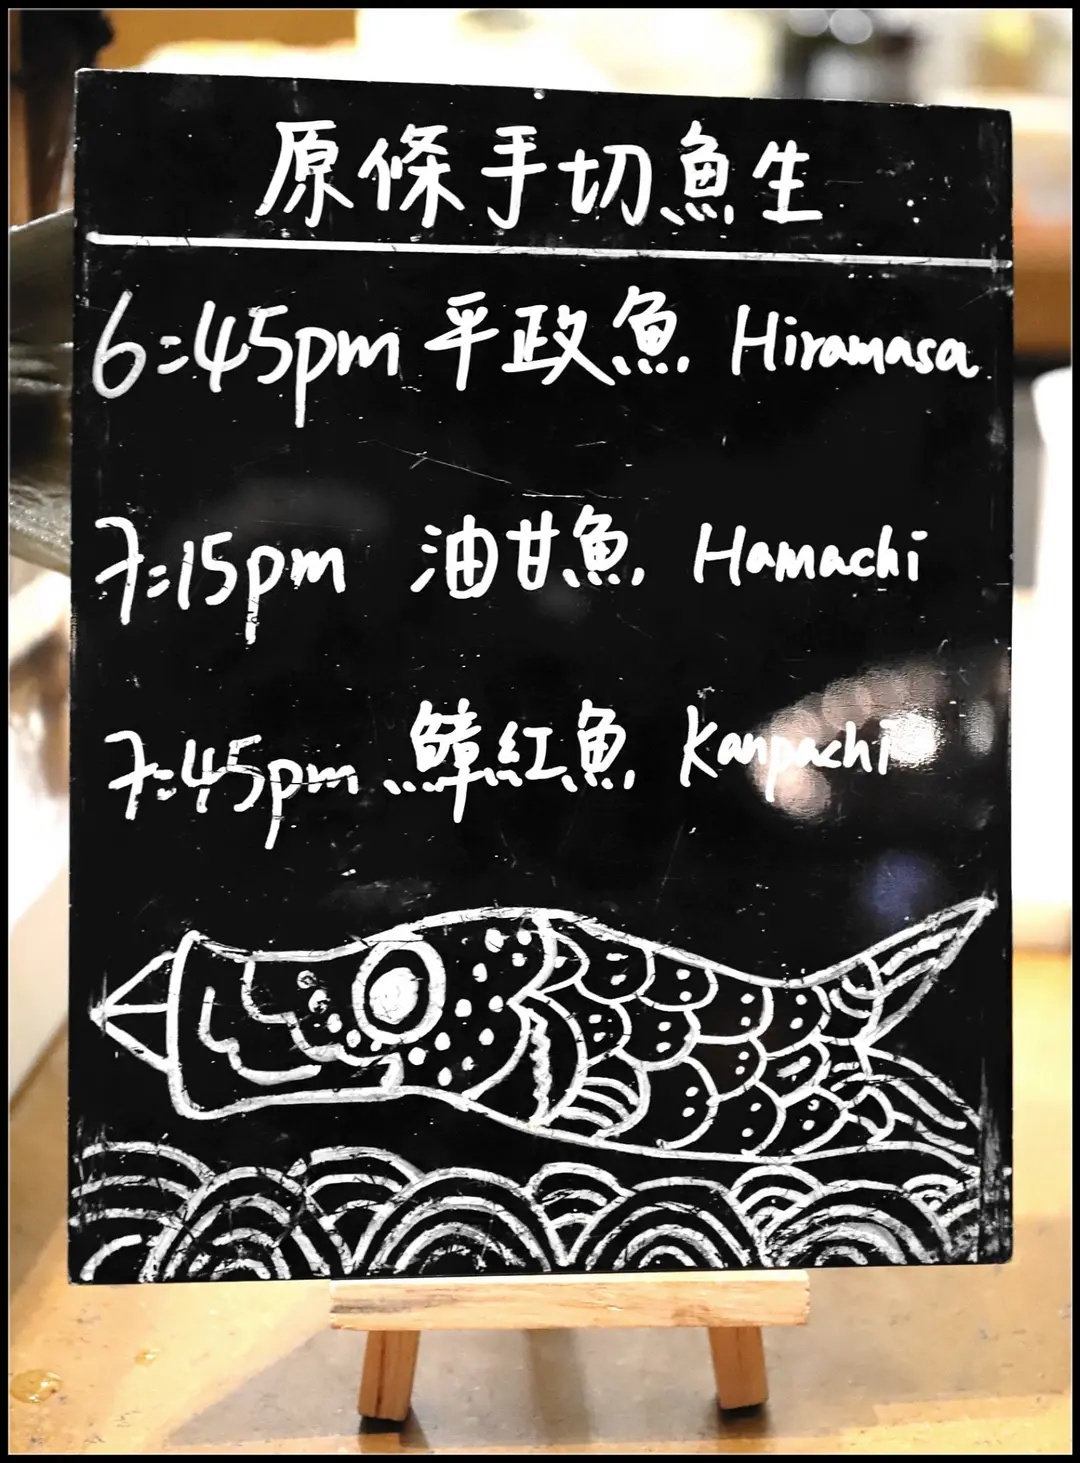 原條手切魚生
6:45pm 平政魚 Hiramasa
7:15pm 油甘魚 Hamachi
7:45pm 鱆紅魚 Kanpachi